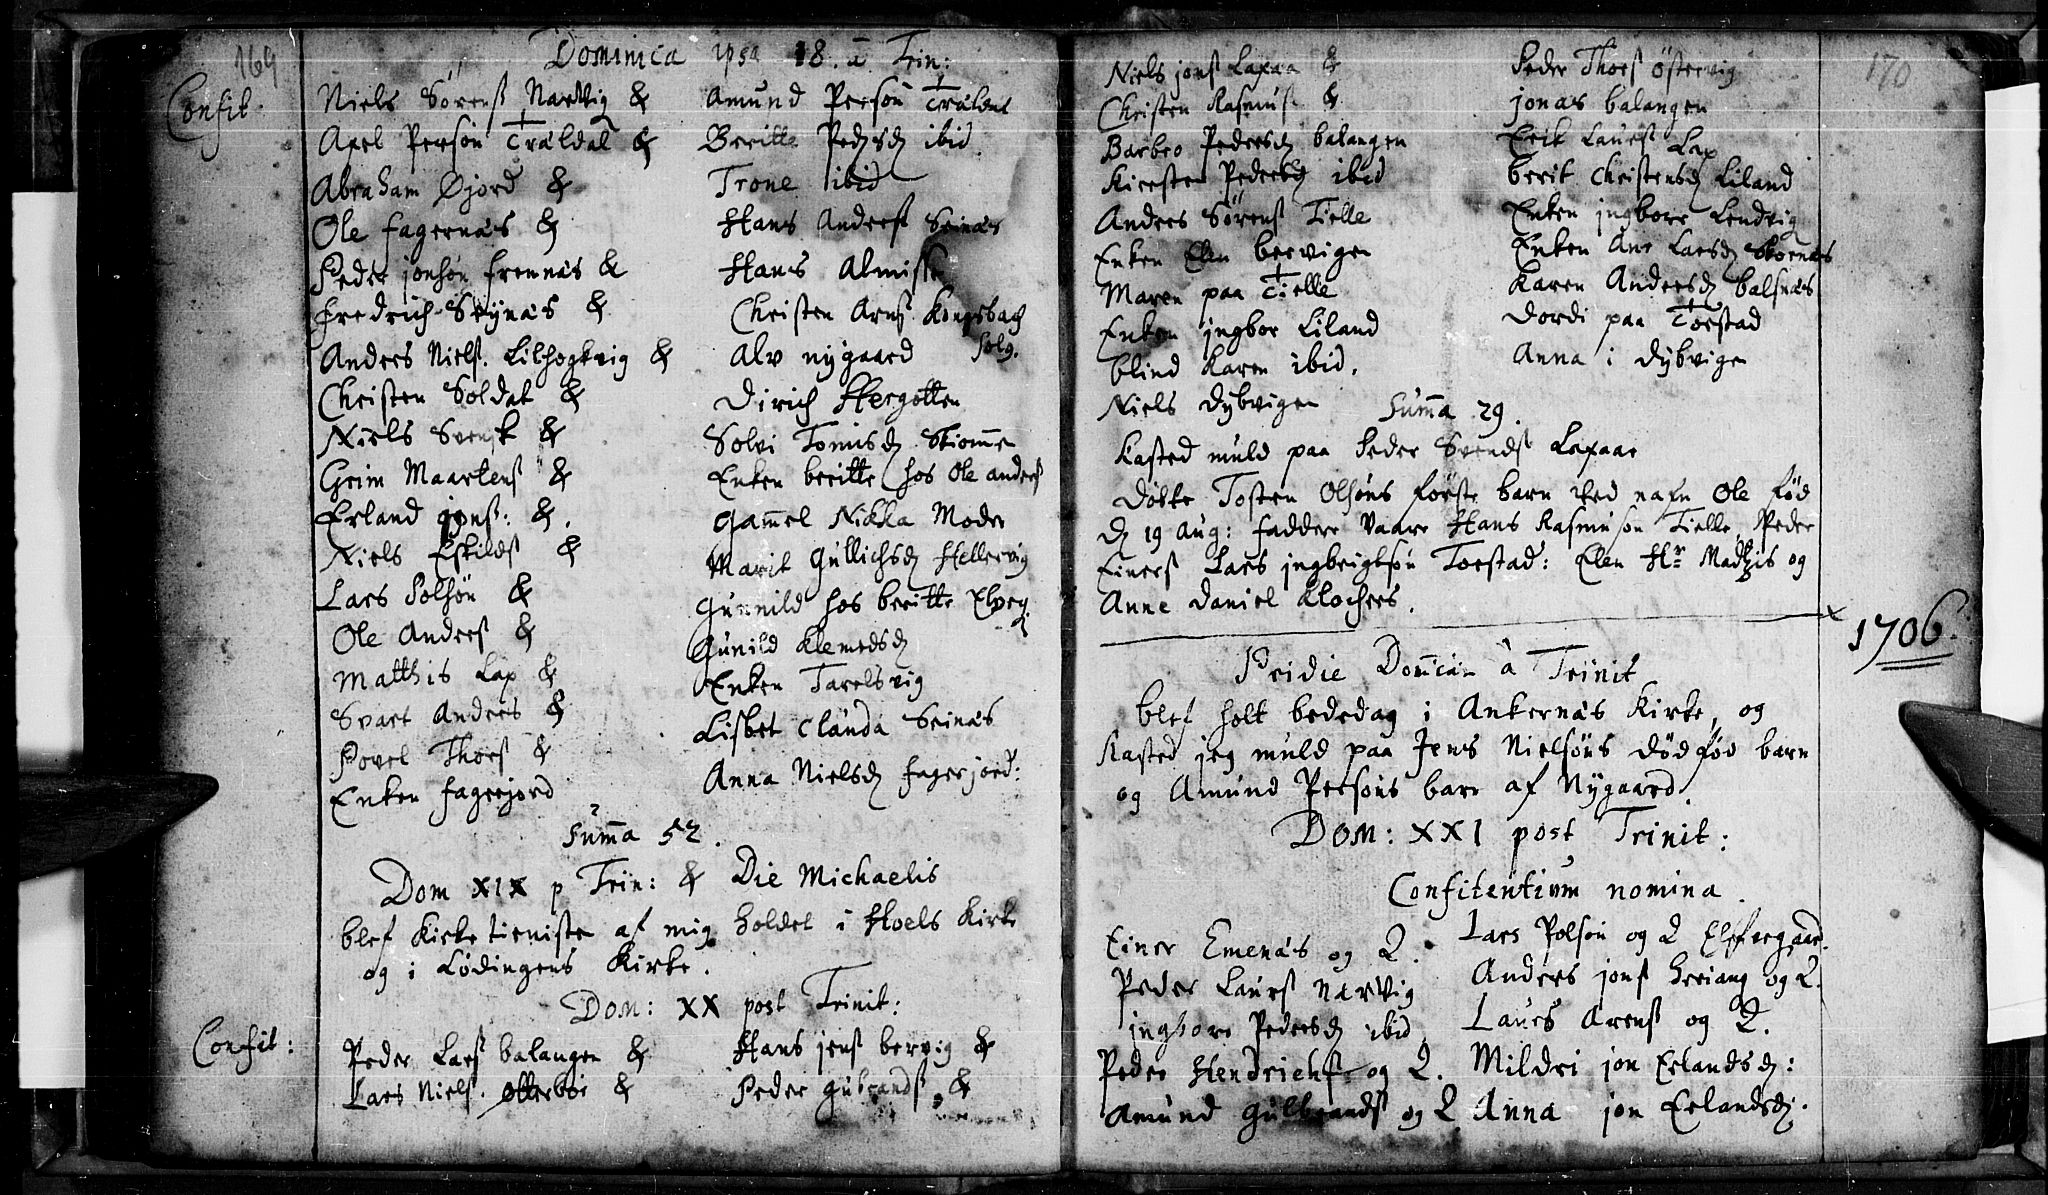 169
Dominica ipsa 18. a Trin:
Confit.
Niels Sörenß Narvig &
Axel Persön Träldal &
Abraham Øjord &
Ole fagernäs &
Peder jonsön frennäs &
fredrich Skynäs &
Anders Nielß. Lilhogkvig &
Christen Soldat &
Niels Svensk &
Grim Maartenß &
Erland jonß: &.
Niels Eskildß &
Lars Polsön &
Ole Anderß &
Matthis Lap &
Svart Anders &
Povel Thorß &
Enken fagerjord
Amund Persön Träldal
Beritte Pedsd ibid
Trone ibid
Hans Anderß Seinäs
Hans Almisse
Christen Arnß Kongsbach
solg.
Alv nygaard
Dirich Hergotten
Solvi Tomisd Skiomme
Enken beritte hos Ole anderß
Gammel Nikka Moder
Marit Gullichsd Hellervig
Gunnild hos beritte Elveg
Gunild Klemedsd
Enken Tarelsvig
Lisbet Clauda Seinäs
Anna Nielsd fagerjord:
Summa 52.
Dom XIX p Trin: & Die Michaelis
blef Kirke tieniste af mig holdet i Hoels Kirke
og i Lødingens Kirke.
Dom: XX post Trinit:
Confit:
Peder Larß balangen &
Lars Nielß. Otterbör &
Hans jenß bervig &
Peder gubrandß &
170
Niels jonß Laxaa &
Christen Rasmuß &
Barbro Pedersd balangen
Kiersten Pedersd ibid
Anders Sörenß Tielle
Enken Elen bervigen
Maren paa Tielle
Enken jngbor Liland
blind Karen ibid.
Niels dybvigen
Peder Thorß Östervig
jonas balangen
Erik Laurß Lap
berit Christensd Liland
Enken jngborr Lendvig
Enken Ane Larsd Skornäs
Karen Andersd balsnäs
Dordi paa Torstad
Anna i dybvigen
Summa 29.
Kasted muld paa Peder Svendß Laxaae
Döbte Tosten Olsöns förste barn ved nafn Ole föd
d 19 Aug: faddere vaare Hans Rasmusön Tielle, Peder
Einerß Lars jngbrigtsön Torstad: Elen Hr Madtzis og
Anne Daniel Klochers.
1706.
Pridie Domcam à Trinit
blef holt bededag i Ankernäs Kirke, og
Kasted jeg muld paa Jens Nielsöns död föd barn
og Amund Persöns barn af Nygaard.
Dom: XXI post Trinit:
Confitentium nomina.
Einer Emenäs og Q.
Peder Laurß Narvig
jngborr Pedersd ibid
Peder Hendrichß og Q.
Amund Gulbrandß og Q
Lars Polsön og Q Elvegaard.
Anders jonß heriang og Q.
Laurs Arenß og Q.
Mildri jon Erlandsd:
Anna jon Erlandsd.